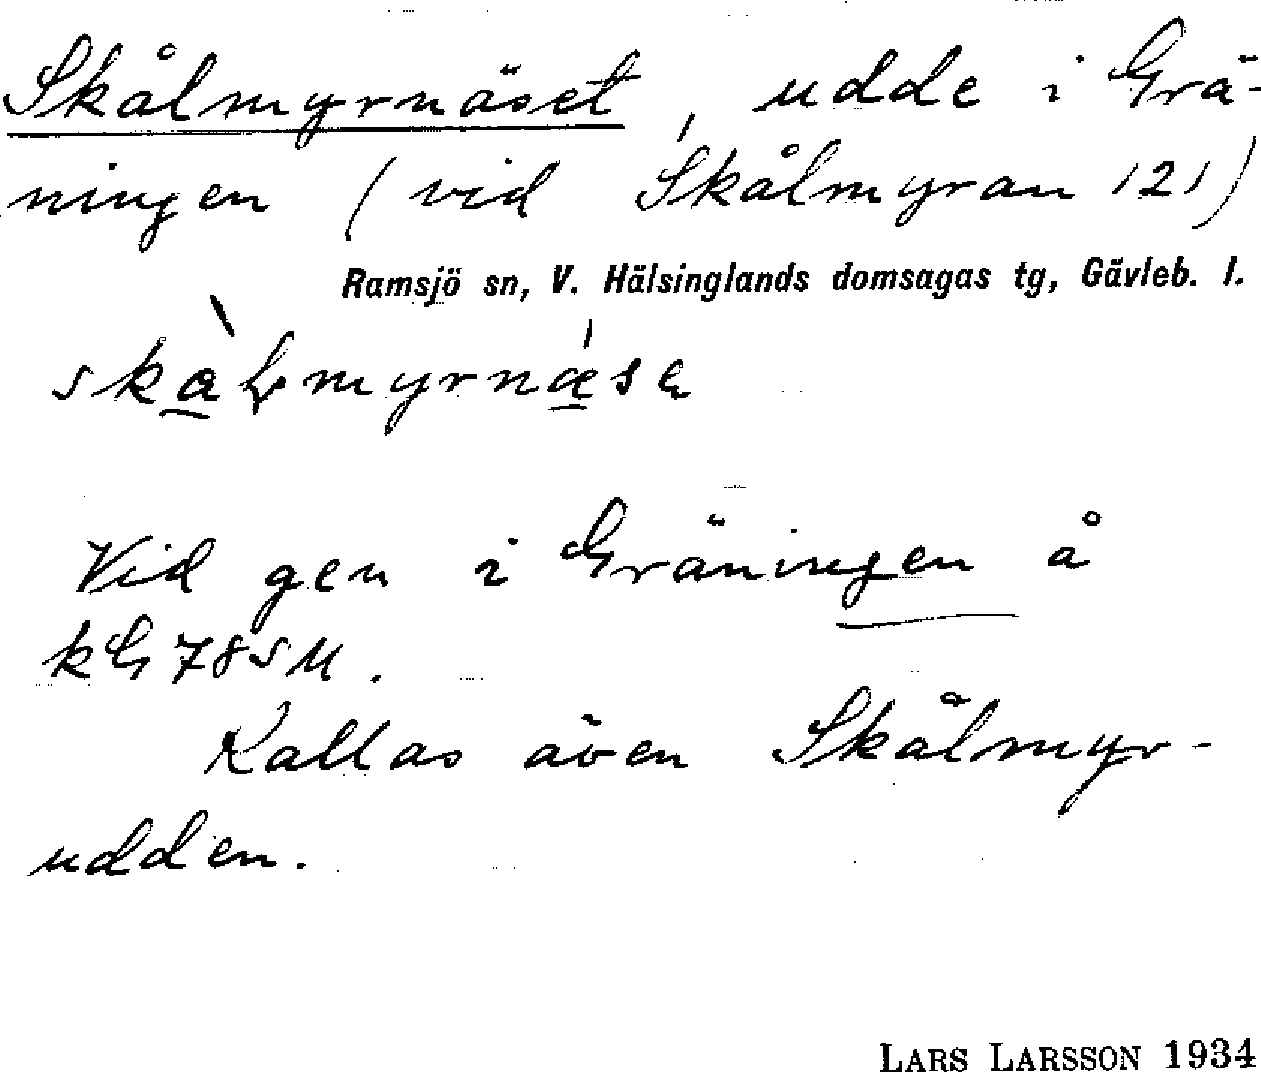 Skålmyrnäset, udde i Grä-
ningen (vid Skålmyran 121)
Ramsjö sn, V. Hälsinglands domsagas tg, Gävleb. l.
Vid gen i Gräningen å
kG 785 M.
Kallas även Skålmyr-
udden.
LARS LARSSON 1934